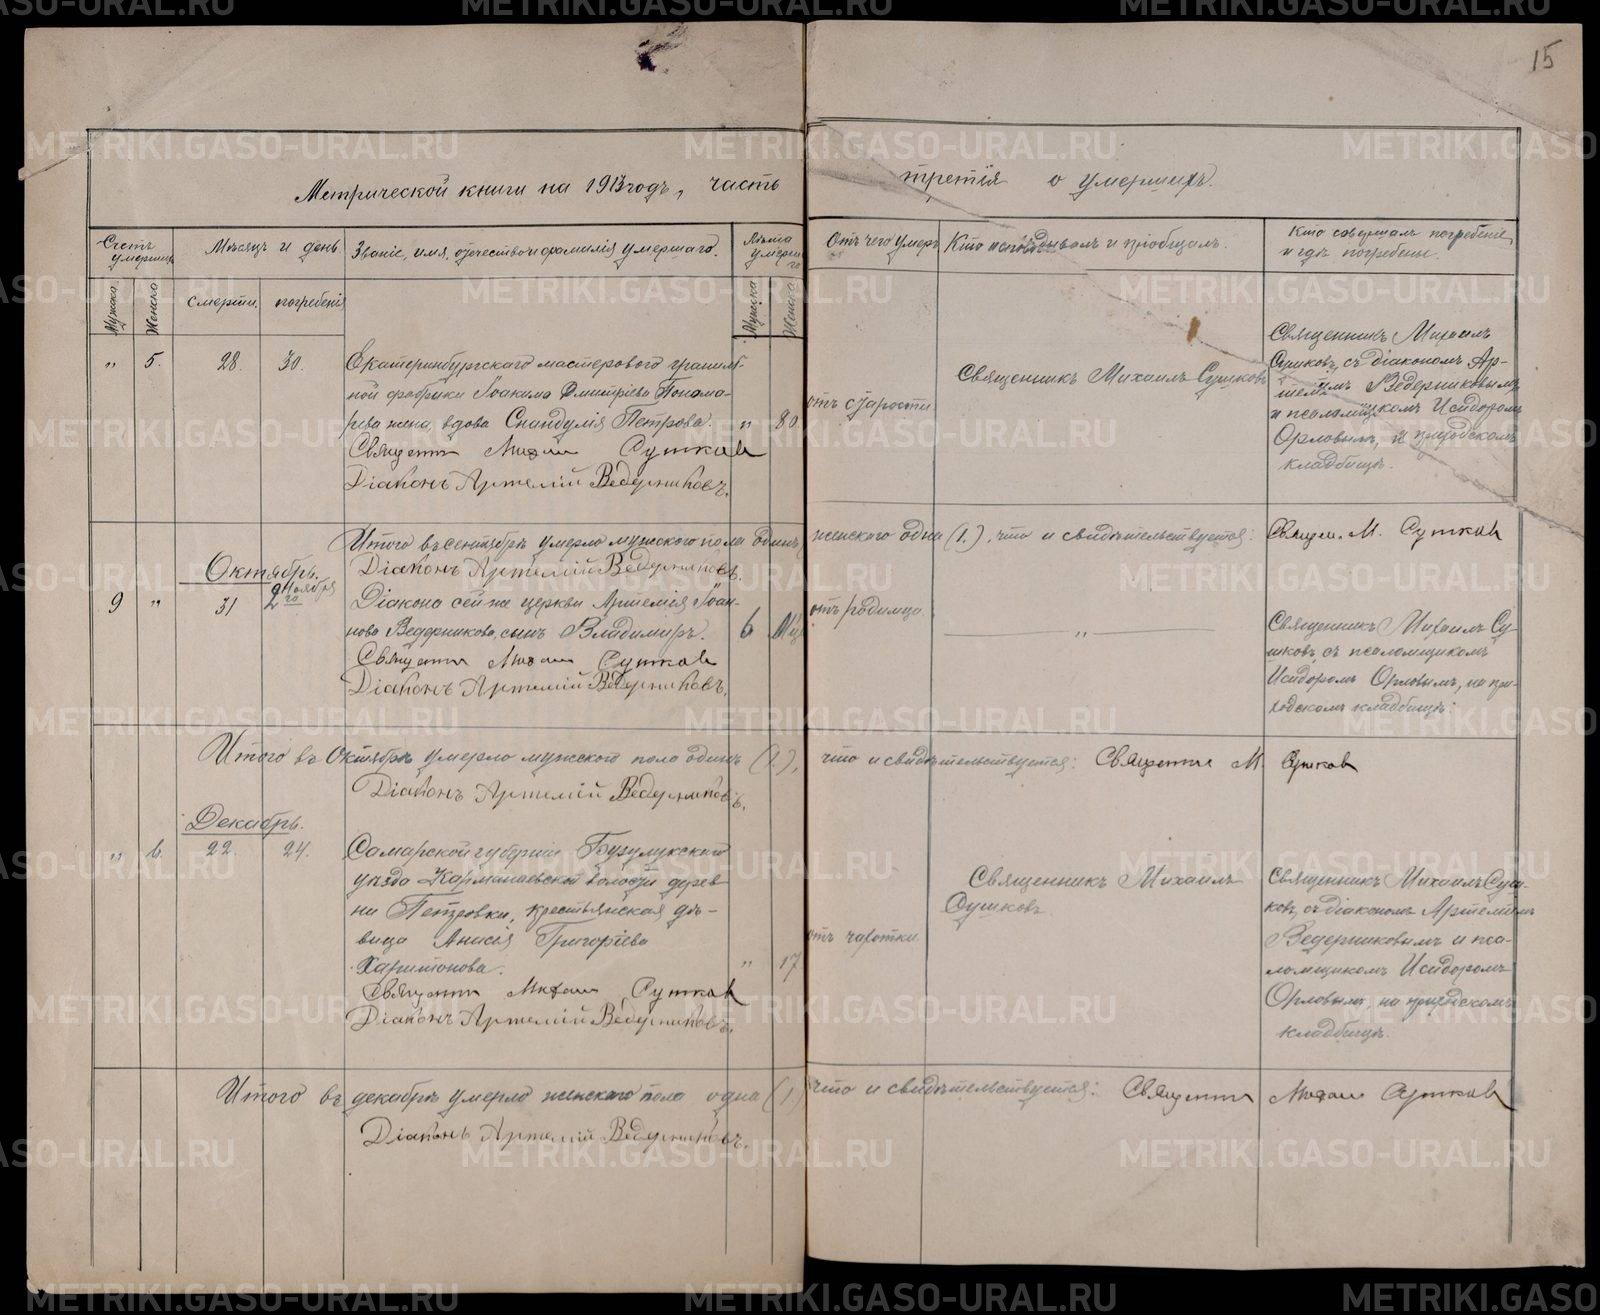 15
Метрической книги на 1913 годъ, часть третія о умершихъ.
Счетъ умершихъ
Мѣсяцъ и день
Званіе, имя, отчество и фамилія умершаго.
Лѣта умершаго
Отъ чего умеръ
Кто исповѣдывалъ и пріобщалъ.
Кто совершалъ погребеніе, и гдѣ погребены.
Мужска
Женско
смерти.
погребенія
Мужска
Женска
„ 5. 28. 30.
Екатеринбургскаго мастерового гранил-
ной фабрики Іоакима Димитріева Понома-
рева жена, вдова Сландулія Петрова.
„ 80.
Священ Михаил Сушков
Діаконъ Артемій Ведерниковъ.
отъ старости
Священникъ Михаилъ Сушковъ
Священникъ Михаилъ
Сушковъ, съ діакономъ Ар-
теміемъ Ведерниковымъ
и псаломщикомъ Исидоромъ
Орловымъ, на приходскомъ
кладбищѣ.
Итого въ сентябрѣ умерло мужского пола одинъ, женского одна (1.), что и свидѣтельствуется: Священ. М. Сушков
Діаконъ Артемій Ведерниковъ.
Октябрь.
9 „ 31 2го Ноября
Діакона сей же церкви Артемія Іоан-
нова Ведерникова, сынъ Владимиръ.
6 Мѣс
Священ Михаил Сушков
Діаконъ Артемій Ведерниковъ.
отъ родимца
„
Священникъ Михаилъ Су-
шковъ, съ псаломщикомъ
Исидоромъ Орловымъ, на при-
ходскомъ кладбищѣ.
Итого въ Октябрѣ умерло мужского пола одинъ (1.), что и свидѣтельствуется: Священник М. Сушков
Діаконъ Артемій Ведерниковъ.
Декабрь.
„ 6. 22. 24.
Самарской губерніи Бузулукскаго
уѣзда Кармалаевской волости дерев-
ни Петровки, крестьянская дѣ-
вица Анисія Григоріева
Харитонова.
„ 17
Священ Михаил Сушков
Діаконъ Артемій Ведерниковъ.
отъ чахотки
Священникъ Михаилъ
Сушковъ.
Священникъ Михаилъ Суш-
ковъ, съ діакономъ Артеміемъ
Ведерниковымъ и пса-
ломщикомъ Исидоромъ
Орловымъ, на приходскомъ
кладбищѣ.
Итого въ декабрѣ умерло женскаго пола одна (1.) что и свидѣтельствуется: Священ Михаил Сушков
Діаконъ Артемій Ведерниковъ.
METRIKI.GASO-URAL.RU